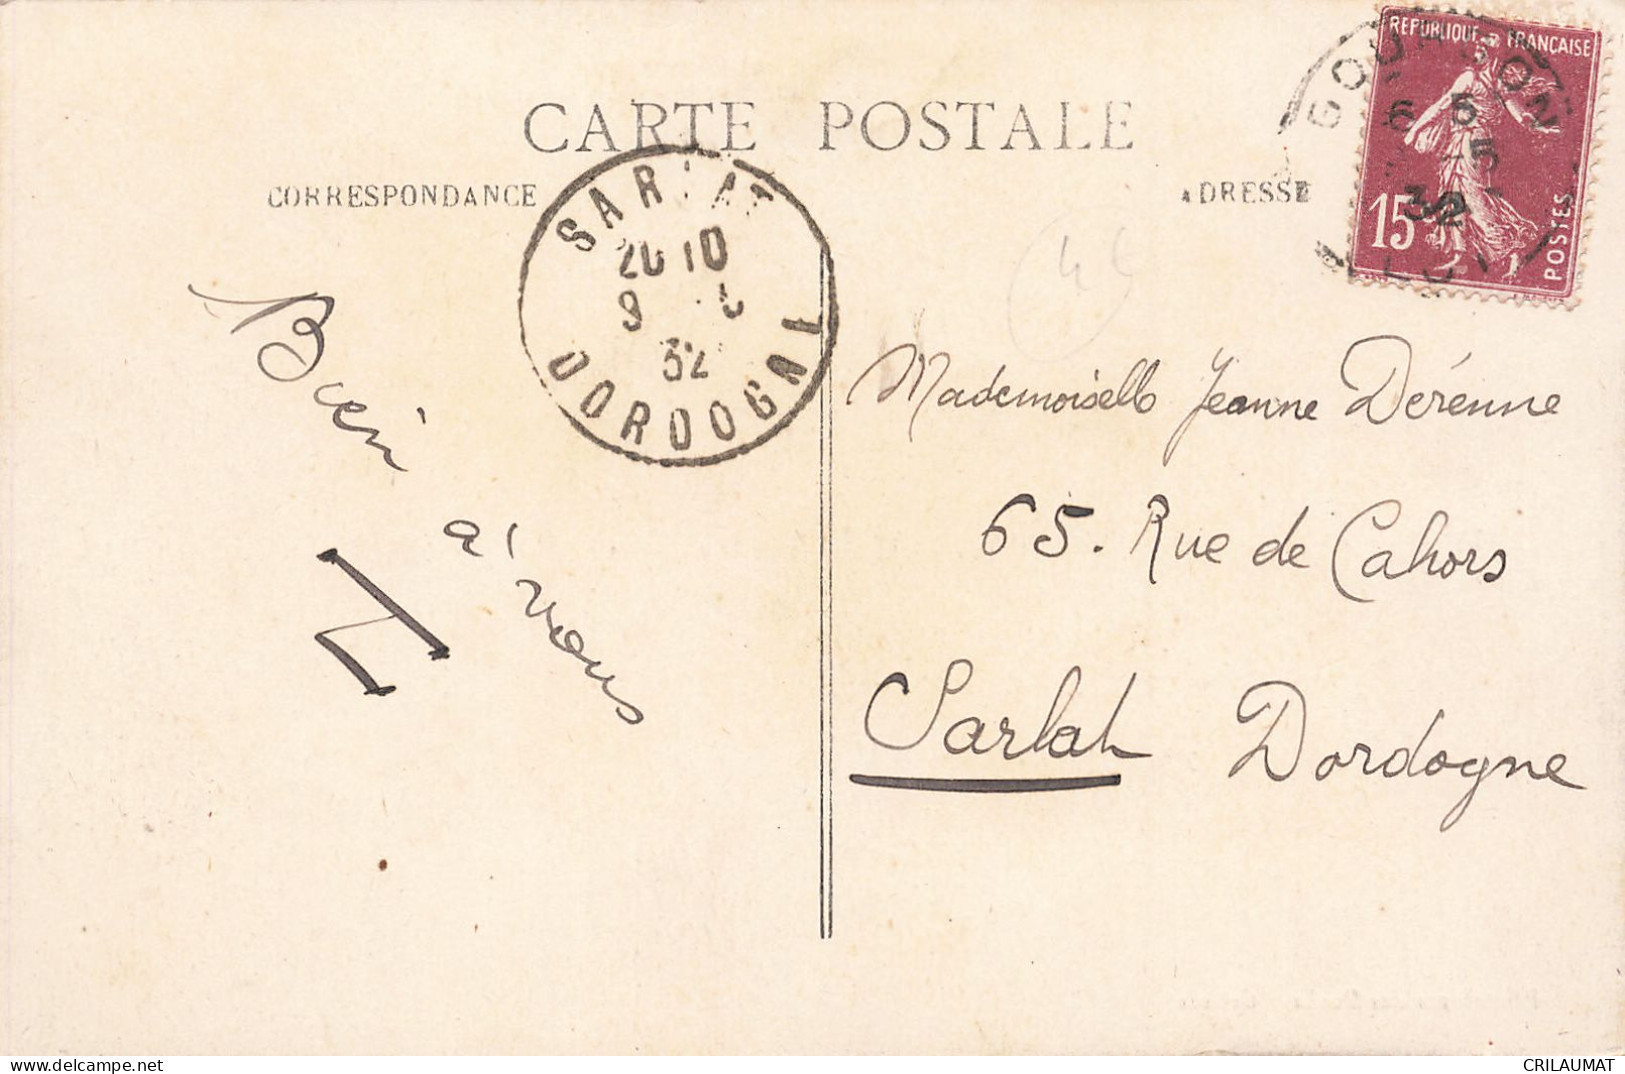 CARTE POSTALE
CORRESPONDANCE
ADRESSE
REPUBLIQUE FRANÇAISE
15c
POSTES
GOURDON
6 5
-5
32
LOT
SARLAT
20 10
9 -5
32
DORDOGNE
Bien
à vous
Mademoiselle Jeanne Dérenne
65. Rue de Cahors
Sarlat Dordogne
CRILAUMAT